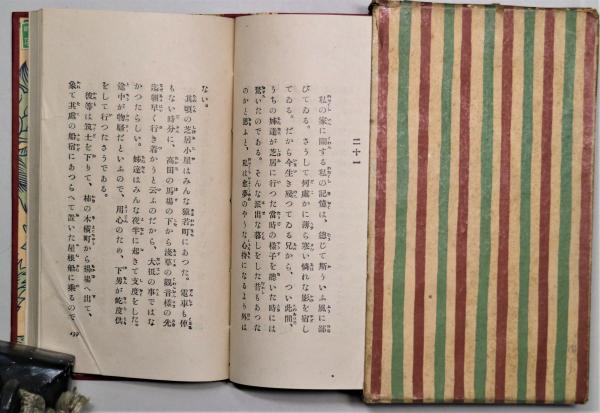 二十一
私の家に關する私の記憶は、總じて斯ういふ風に鄙
びてゐる。さうして何處かに薄ら寒い憐れな影を宿し
てゐる。だから今生き殘つてゐる兄から、つい此間、
うちの姉達が芝居に行つた當時の樣子を聽いた時には
驚いたのである。そんな派出な暮しをした昔もあつた
のかと思ふと、私は愈夢のやうな心持になるより外は
ない。
其頃の芝居小屋はみんな猿若町にあつた。電車も俥
もない時分に、高田の馬場の下から淺草の觀音樣の先
迄朝早く行き着かうと云ふのだから、大抵の事ではな
かつたらしい。姉達はみんな夜半に起きて支度をした。
途中が物騷だといふので、用心のため、下男が屹度供
をして行つたさうである。
彼等は筑土を下りて、柿の木橫町から揚場へ出て、
象て其處の船宿にあつらへて置いた屋根船に乘るので